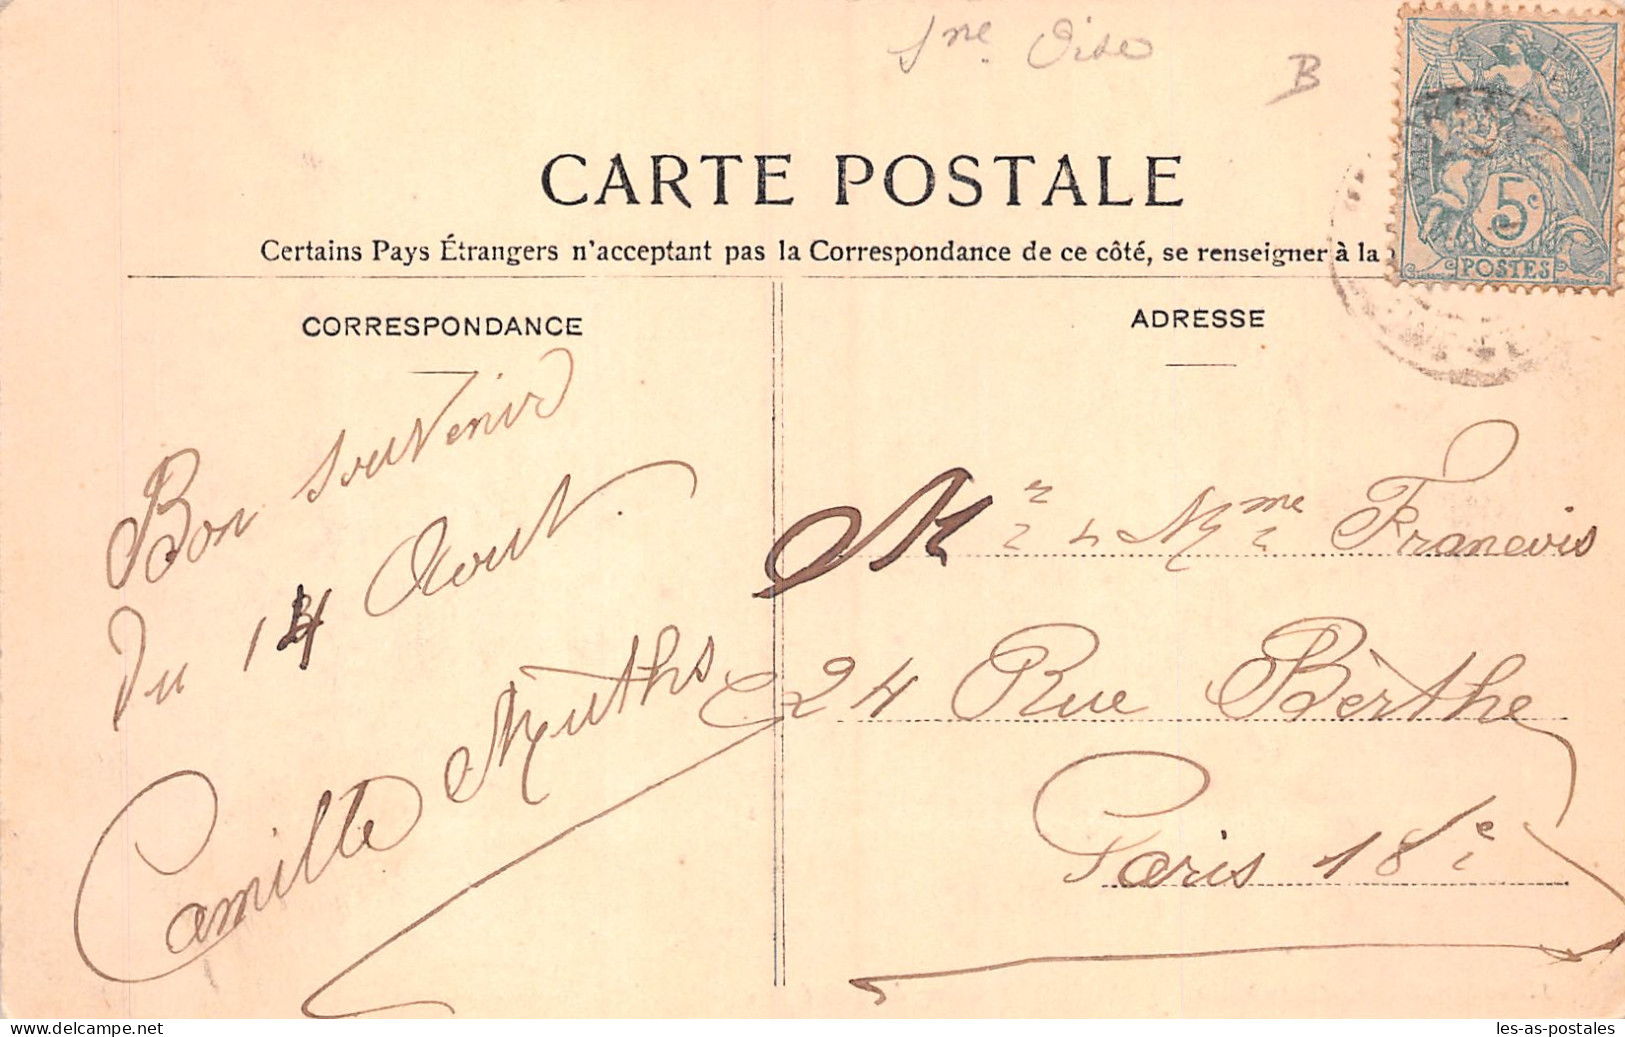 Sne Oise
B
CARTE POSTALE
Certains Pays Étrangers n'acceptant pas la Correspondance de ce côté, se renseigner à la
CORRESPONDANCE
Bon souvenir
Du 14 Aout
Camille Muths
ADRESSE
Mr & Mme Francois
24 Rue Bèrthe
Paris 18e
5c
POSTES
www.delcampe.net
les-as-postales